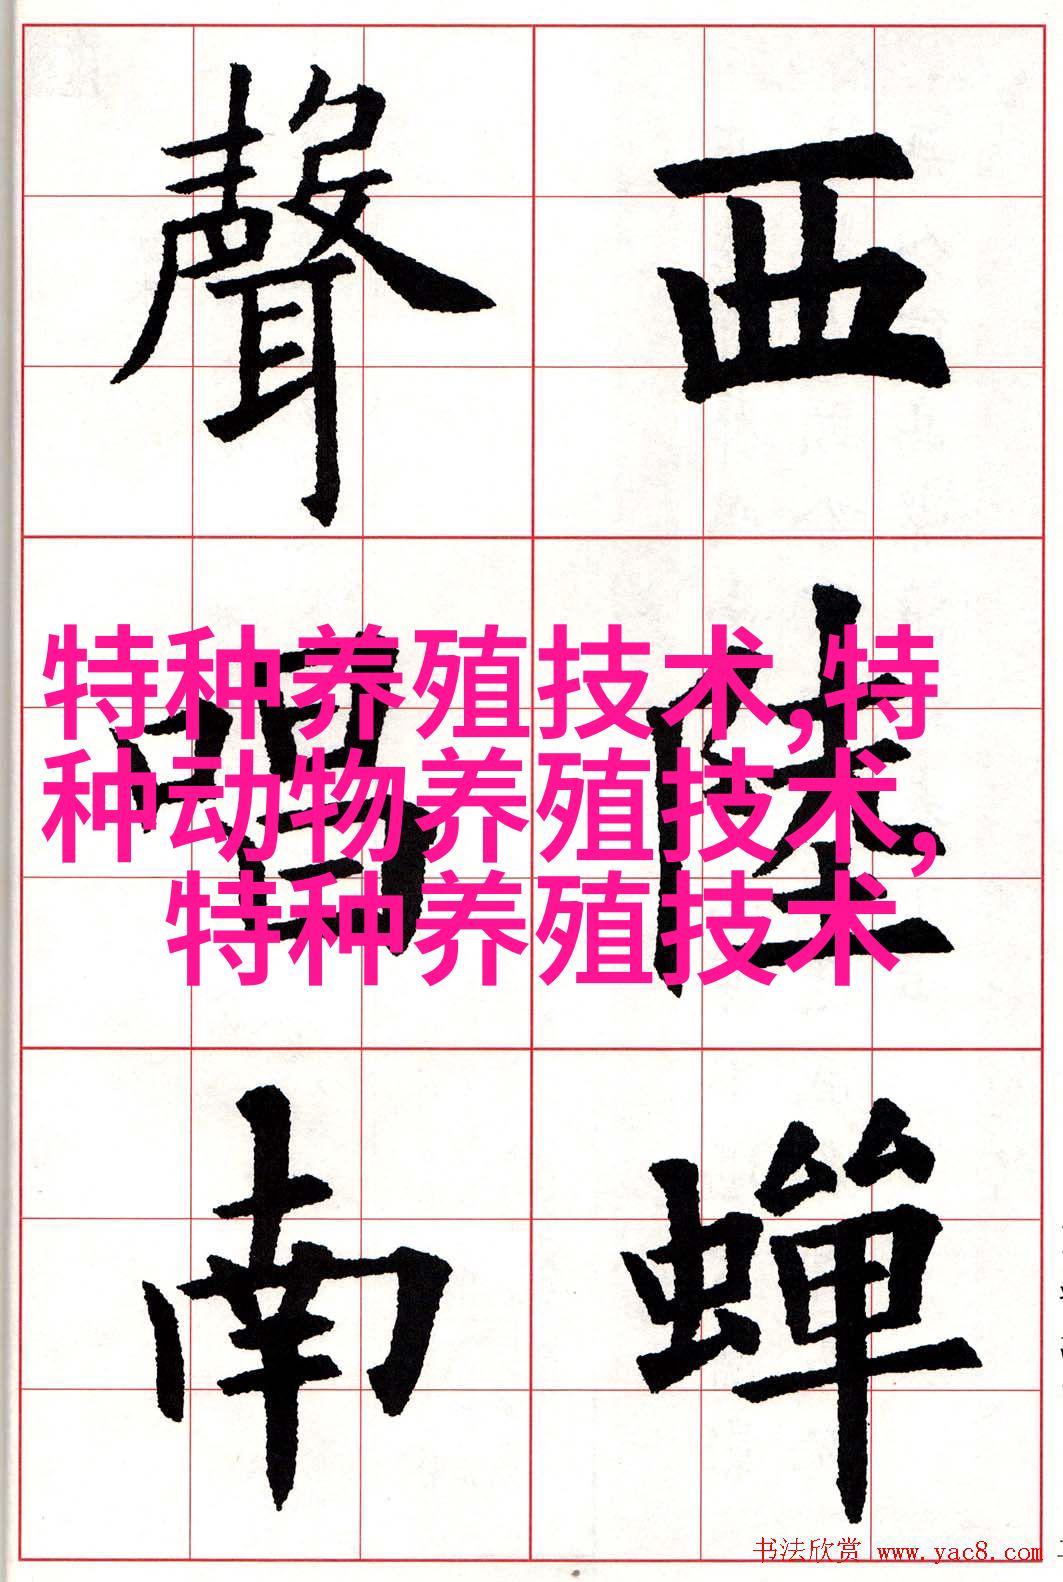 西陸蟬
聲唱南
特种养殖技术,特
种动物养殖技术,
特种养殖技术
书法欣赏 www.yac8.com